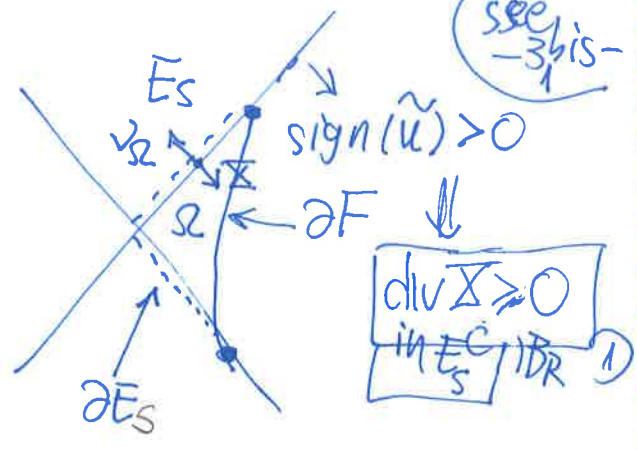 see
-3bis-
1
E_S
ν_Ω
sign(ũ) > 0
X
Ω
← ∂F
⇓
div X ≥ 0
in E_S^C ∩ B_R ①
∂E_S